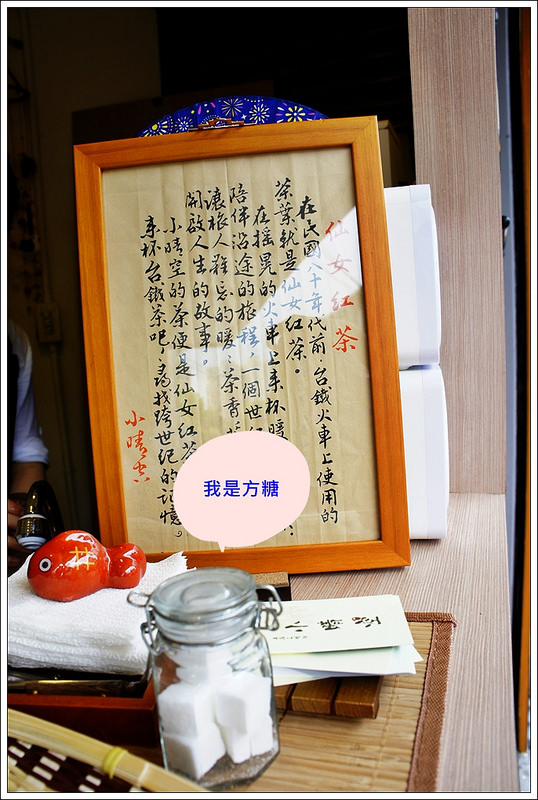 仙女紅茶
在民國八十年代前，台鐵火車上使用的
茶葉就是仙女紅茶。
在搖晃的火車上來杯暖
陪伴沿途的旅程，一個世紀
讓旅人難忘的暖〻茶香
開啟人生的故事。
小晴空的茶便是仙女紅茶
來杯台鐵茶吧，尋找跨世紀的記憶。
小晴空
我是方糖